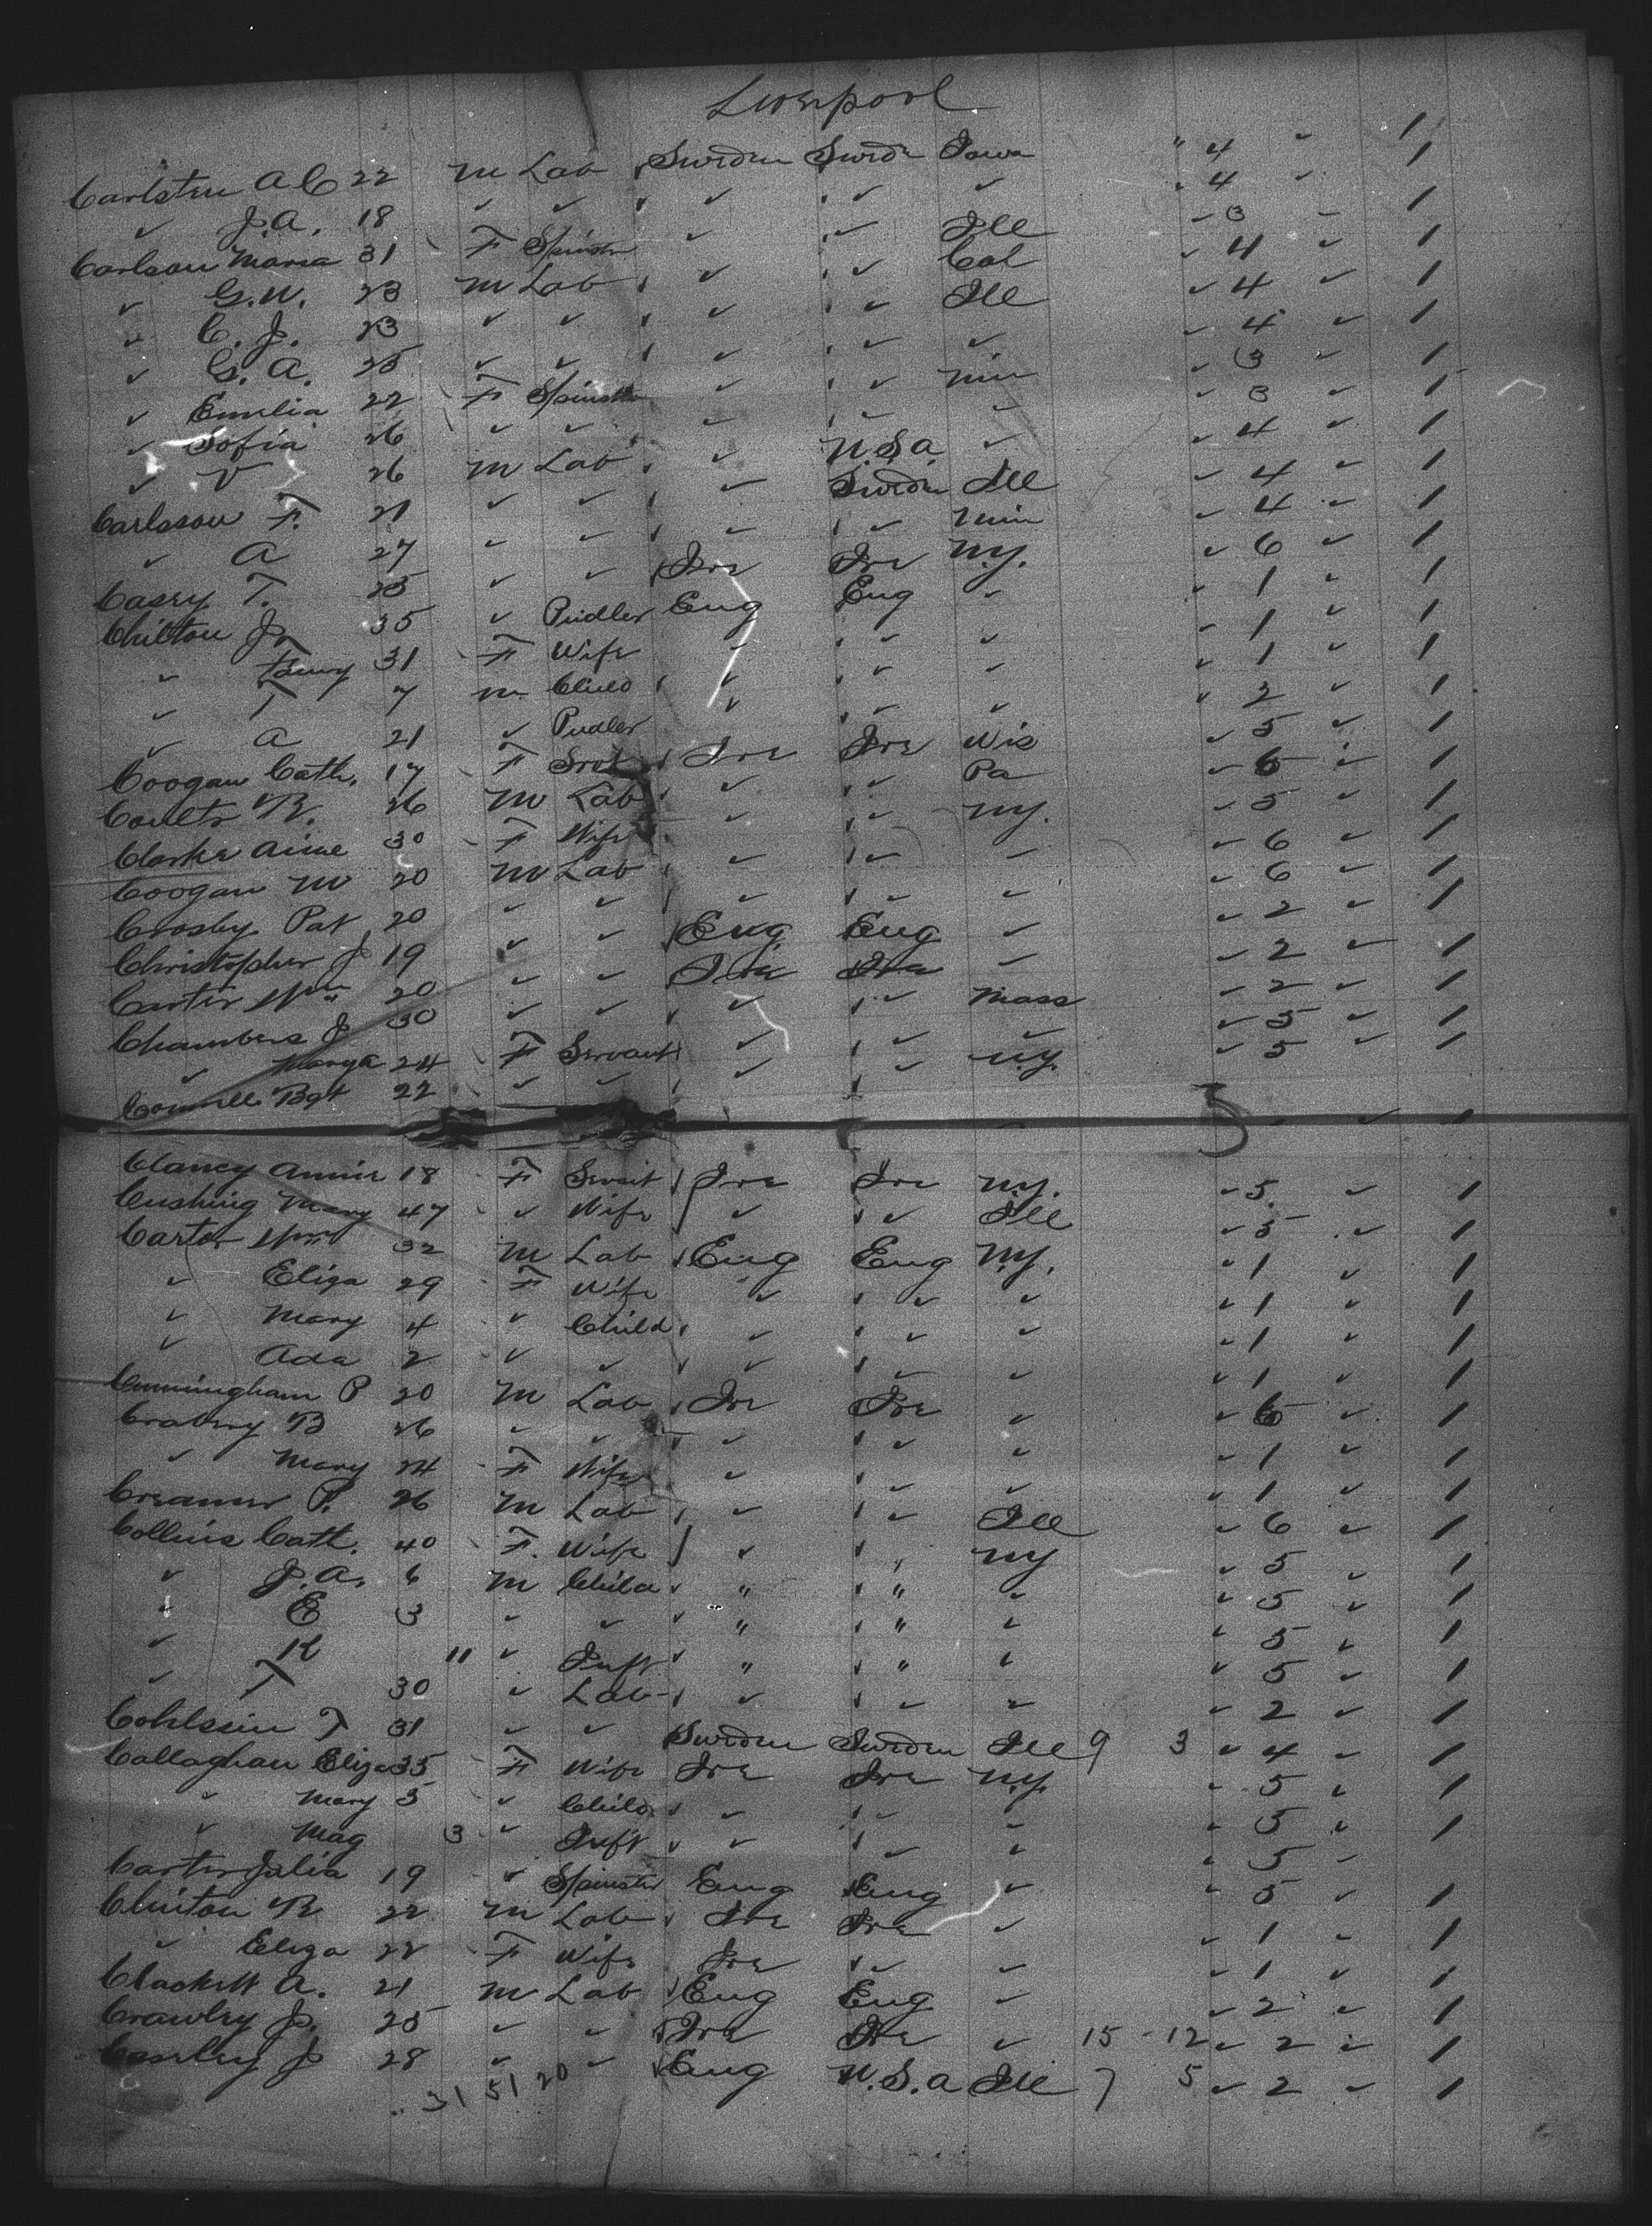 Liverpool
Carlsten A C 22 M Lab Sweden Swedn Iowa " 4 ✓ 1
✓ J.A. 18 ✓ ✓ ✓ ✓ ✓ ✓ 4 ✓ 1
Carlson Maria 31 F Spinstr ✓ ✓ Ill ✓ 3 ✓ 1
✓ G.W. 23 M Lab ✓ ✓ Cal ✓ 4 ✓ 1
✓ C. J. 23 ✓ ✓ ✓ ✓ Ill ✓ 4 ✓ 1
✓ G. A. 25 ✓ ✓ ✓ ✓ ✓ ✓ 4 ✓ 1
✓ Emelia 22 F Spinstr ✓ ✓ Min ✓ 3 ✓ 1
✓ Sofia 26 ✓ ✓ ✓ ✓ ✓ ✓ 3 ✓ 1
✓ V 26 M Lab ✓ U.S.a. ✓ ✓ 4 ✓ 1
Carlsson F. 21 ✓ ✓ ✓ Sweden Ill ✓ 4 ✓ 1
✓ A 27 ✓ ✓ ✓ ✓ Min ✓ 4 ✓ 1
Casey T. 25 ✓ ✓ Ire Ire N.y. ✓ 6 ✓ 1
Chilton J. 35 ✓ Pudler Eng Eng ✓ ✓ 1 ✓ 1
✓ 31 F Wife ✓ ✓ ✓ ✓ 1 ✓ 1
✓ T 7 M. Child ✓ ✓ ✓ ✓ 1 ✓ 1
✓ A 21 ✓ Pudler ✓ ✓ ✓ ✓ 2 ✓ 1
Coogan Cath. 17 F Srvt Ire Ire Wis ✓ 5 ✓ 1
Coultr R. 26 M Lab ✓ ✓ Pa ✓ 6 ✓ 1
Clarke Annie 30 F Wife ✓ ✓ ny. ✓ 5 ✓ 1
Coogan M 20 M Lab ✓ ✓ ✓ ✓ 6 ✓ 1
Crosby Pat 20 ✓ ✓ ✓ ✓ ✓ ✓ 6 ✓ 1
Christopher J 19 ✓ ✓ Eng Eng ✓ ✓ 2 ✓ 1
Carter Wm 20 ✓ ✓ Ire Ire ✓ ✓ 2 ✓ 1
Chambers J 30 ✓ ✓ ✓ ✓ Mass ✓ 2 ✓ 1
✓ Marga 24 F Servant ✓ ✓ ✓ ✓ 5 ✓ 1
Connell Bgt 22 ✓ ✓ ✓ ✓ n.y. ✓ 5 ✓ 1
5 ✓ 1
Clancy Annie 18 F Srvnt Ire Ire N.y. ✓ 5 ✓ 1
Cushing Mary 47 ✓ Wife ✓ ✓ Ill ✓ 5 ✓ 1
Carter Wm 32 M Lab Eng Eng N.y. ✓ 1 ✓ 1
✓ Eliza 29 F Wife ✓ ✓ ✓ ✓ 1 ✓ 1
✓ Mary 4 ✓ Child ✓ ✓ ✓ ✓ 1 ✓ 1
✓ Ada 2 ✓ ✓ ✓ ✓ ✓ ✓ 1 ✓ 1
Cunningham P 20 M Lab Ire Ire ✓ ✓ 6 ✓ 1
B 26 ✓ ✓ ✓ ✓ ✓ ✓ 1 ✓ 1
✓ Mary 24 F Wife ✓ ✓ ✓ ✓ 1 ✓ 1
Creamer P. 26 M Lab ✓ ✓ Ill ✓ 6 ✓ 1
Collins Cath. 40 F. Wife ✓ ✓ NY ✓ 5 ✓ 1
✓ J.A. 6 M Child " " ✓ ✓ 5 ✓ 1
✓ E 3 ✓ ✓ " " ✓ ✓ 5 ✓ 1
✓ K 11 ✓ Inft " " ✓ ✓ 5 ✓ 1
✓ T 30 ✓ Lab ✓ ✓ ✓ ✓ 2 ✓ 1
T 31 ✓ ✓ Sweden Sweden Ill 9 3 ✓ 4 ✓ 1
Callaghan Eliza 35 F Wife Ire Ire N.y. ✓ 5 ✓ 1
✓ Mary 5 ✓ Child ✓ ✓ ✓ ✓ 5 ✓ 1
✓ Mag 3 ✓ Inft ✓ ✓ ✓ ✓ 5 ✓
Carter Julia 19 ✓ Spinster Eng Eng ✓ ✓ 5 ✓ 1
Clinton R 22 M Lab Ire Ire ✓ ✓ 1 ✓ 1
✓ Eliza 22 F Wife Ire ✓ ✓ ✓ 1 ✓ 1
Clackett A. 21 M Lab Eng Eng ✓ ✓ 2 ✓ 1
Crawley J. 25 ✓ ✓ Ire Ire ✓ 15 - 12 ✓ 2 ✓ 1
J 28 ✓ ✓ Eng U.S.a Ill 7 5 ✓ 2 ✓ 1
31 51 20